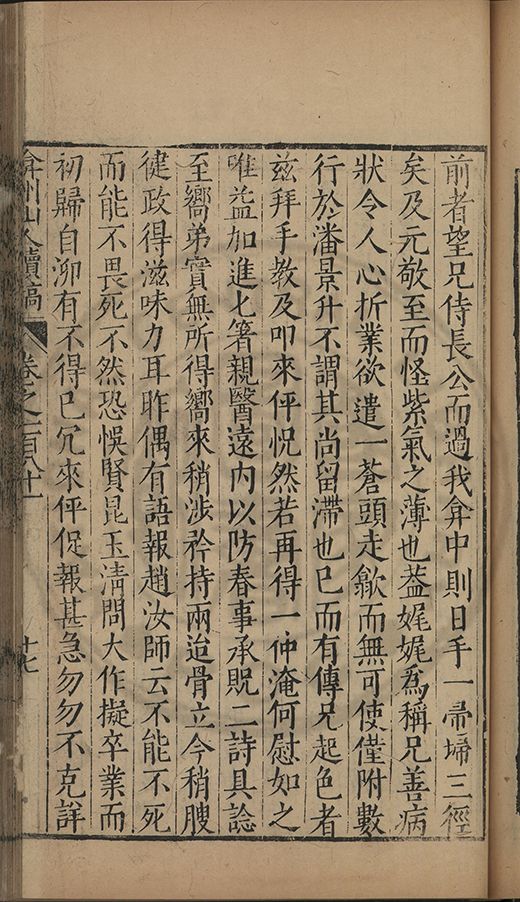 前者望兄侍長公而過我弇中則日手一帚埽三徑
矣及元敬至而怪紫氣之薄也葢娓娓爲稱兄善病
狀令人心折業欲遣一蒼頭走歙而無可使僅附數
行於潘景升不謂其尚留滯也已而有傳兄起色者
玆拜手教及叩來伻怳然若再得一仲淹何慰如之
唯益加進匕箸親醫遠内以防春事承貺二詩具諗
至嚮弟實無所得嚮來稍涉矜持兩迨骨立今稍腴
徤政得滋味力耳昨偶有語報趙汝師云不能不死
而能不畏死不然恐悞賢昆玉淸問大作擬卒業而
初歸自泖有不得已冗來伻促報甚急勿勿不克詳
弇州山人續稿
卷之一百八十一
十七